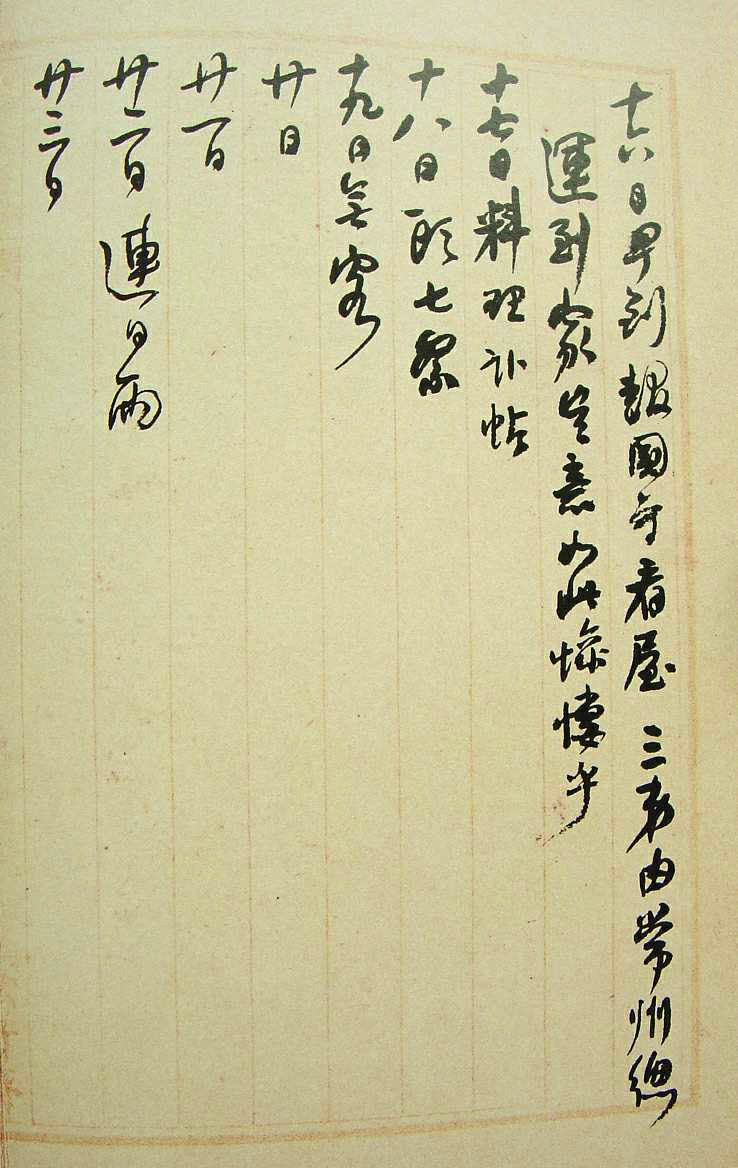 十六日早到報國寺看屋 三弟由常州
運到家 意如此慘悽
十七日料理訃帖
十八日頭七祭
十九日無客
廿日
廿一日
廿二日 連日雨
廿三日